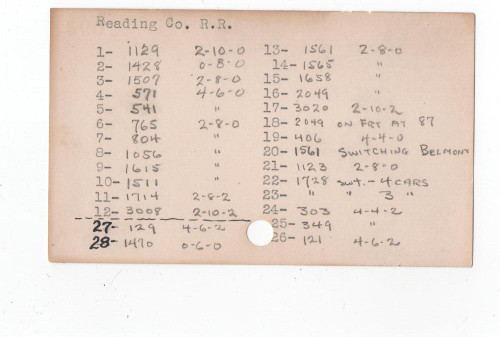 Reading Co. R.R.
1- 1129 2-10-0
2- 1428 0-8-0
3- 1507 2-8-0
4- 571 4-6-0
5- 541 "
6- 765 2-8-0
7- 804 "
8- 1056 "
9- 1615 "
10- 1511 "
11- 1714 2-8-2
12- 3008 2-10-2
27- 129 4-6-2
28- 1470 0-6-0
13- 1561 2-8-0
14- 1565 "
15- 1658 "
16- 2049 "
17- 3020 2-10-2
18- 2049 ON FRT AT 87
19- 406 4-4-0
20- 1561 SWITCHING BELMONT
21- 1123 2-8-0
22- 1728 SWT. - 4 CARS
23- " " 3 "
24- 303 4-4-2
25- 349 "
26- 121 4-6-2